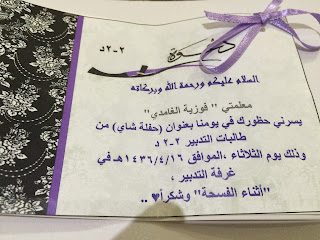 دعوة
٢-٢د
السلام عليكم ورحمة الله وبركاته
معلمتي "فوزية الغامدي"
يسرني حظورك في يومنا بعنوان (حفلة شاي) من
طالبات التدبير ٢-٢ د
وذلك يوم الثلاثاء ،الموافق ١٤٣٦/٤/١٦هـ في
غرفة التدبير ،
"أثناء الفسحة" وشكراً♥ ..